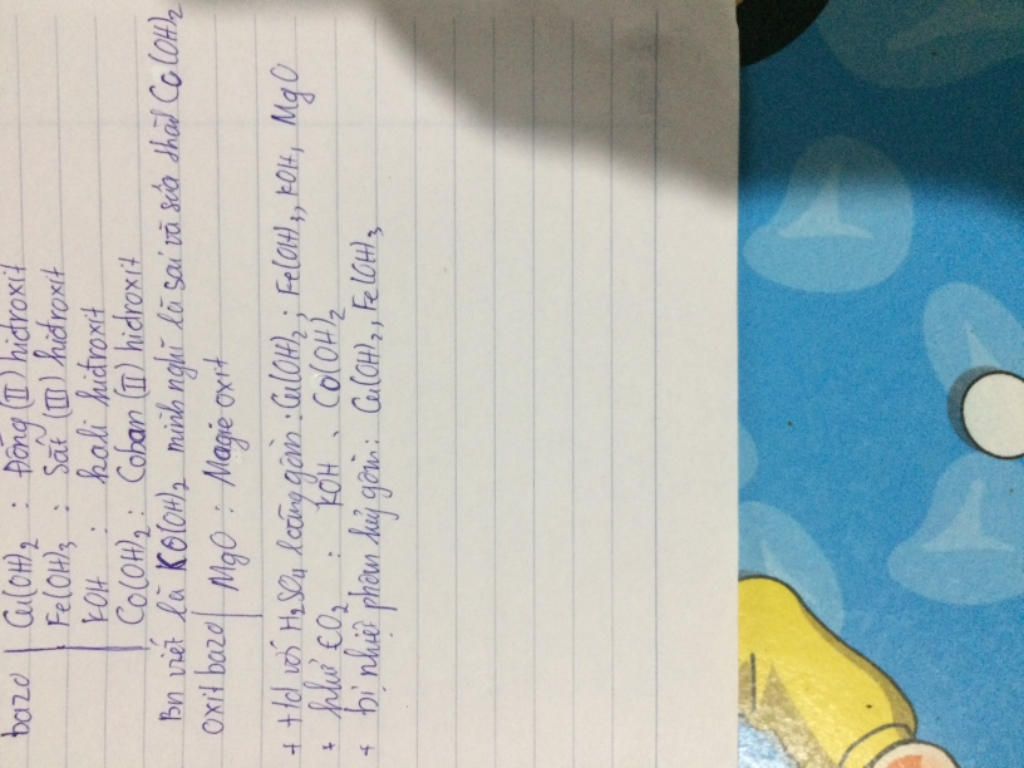 bazo | Cu(OH)2 : Đồng (II) hiđroxit
Fe(OH)3 : Sắt (III) hiđroxit
KOH : kali hiđroxit
Co(OH)2 : Coban (II) hiđroxit
Bn viết là KO(OH)2 mình nghĩ là sai và sửa thành Co(OH)2
oxit bazo | MgO : Magie oxit
+ td với H2SO4 loãng gồm : Cu(OH)2 ; Fe(OH)3, KOH, MgO
+ khí CO2 : KOH, Co(OH)2
+ bị nhiệt phân hủy gồm : Cu(OH)2, Fe(OH)3